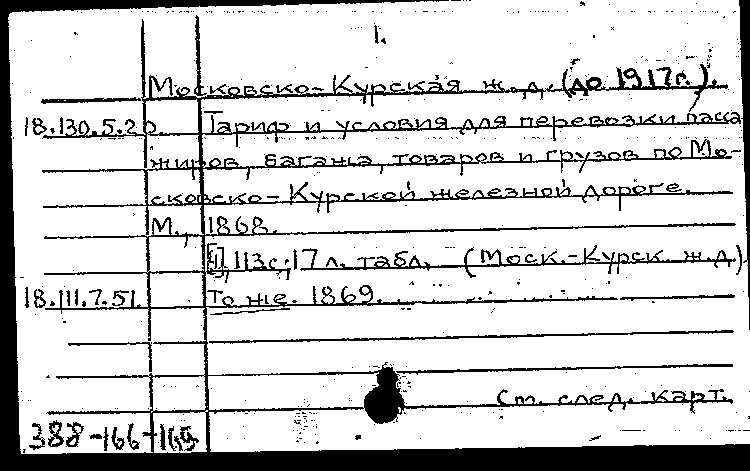 1.
Московско-Курская ж.д. (до 1917г.).
18.130.5.2 Тариф и условия для перевозки пасса
жиров, багажа, товаров и грузов по Мо-
сковско-Курской железной дороге.
М., 1868.
113с.; 17 л. табл. (Моск.-Курск. ж.д.)
18.111.7.51. То же. 1869.
См. след. карт.
388-166-165